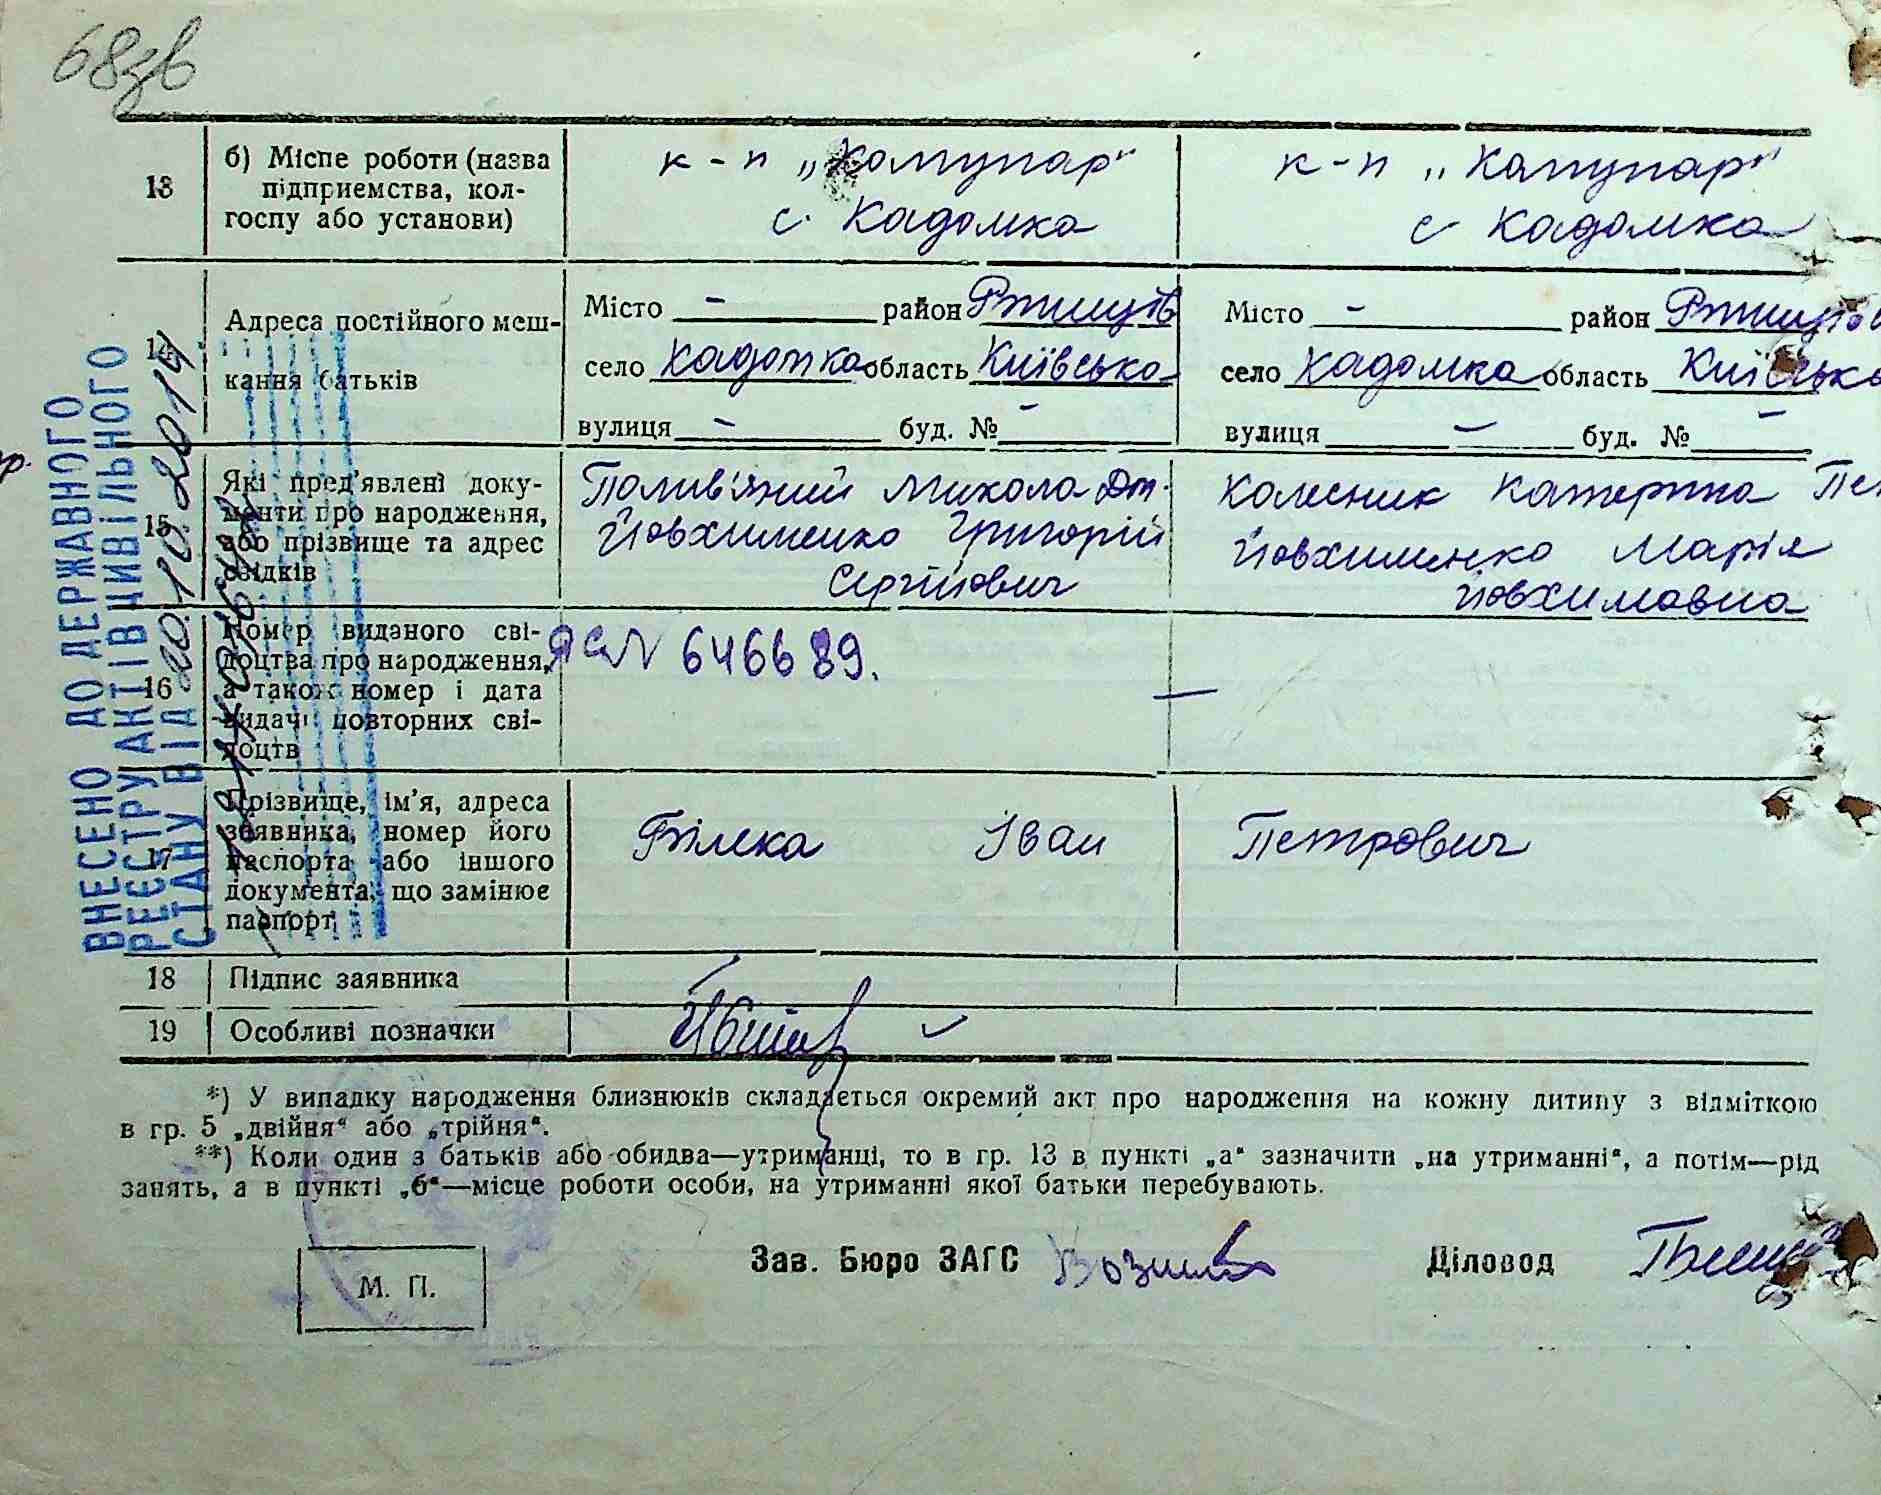 68зв
13 б) Місце роботи (назва підприємства, колгоспу або установи)
к-п „Комунар“
с. Кадомка
к-п „Комунар“
с Кадомка
14 Адреса постійного мешкання батьків
Місто – район Ржищів
село Кадомка область Київська
вулиця – буд. № –
Місто – район Ржищів
село Кадомка область Київська
вулиця – буд. № –
15 Які пред'явлені документи про народження, або прізвище та адрес свідків
Полив'яний Микола
Йовхименко Григорій
Сергійович
Колесник Катерина Пет
Йовхименко Марія
Йовхимовна
16 Номер виданого свідоцтва про народження, а також номер і дата видачі повторних свідоцтв
№ 646689.
–
17 Прізвище, ім'я, адреса заявника, номер його паспорта або іншого документа, що замінює паспорт
Білека Іван Петрович
18 Підпис заявника
19 Особливі позначки
ВНЕСЕНО ДО ДЕРЖАВНОГО
РЕЄСТРУ АКТІВ ЦИВІЛЬНОГО
СТАНУ ВІД 20.10.2014
*) У випадку народження близнюків складається окремий акт про народження на кожну дитину з відміткою
в гр. 5 „двійня“ або „трійня“.
**) Коли один з батьків або обидва—утриманці, то в гр. 13 в пункті „а“ зазначити „на утриманні“, а потім—рід
занять, а в пункті „б“—місце роботи особи, на утриманні якої батьки перебувають.
М. П.
Зав. Бюро ЗАГС
Діловод